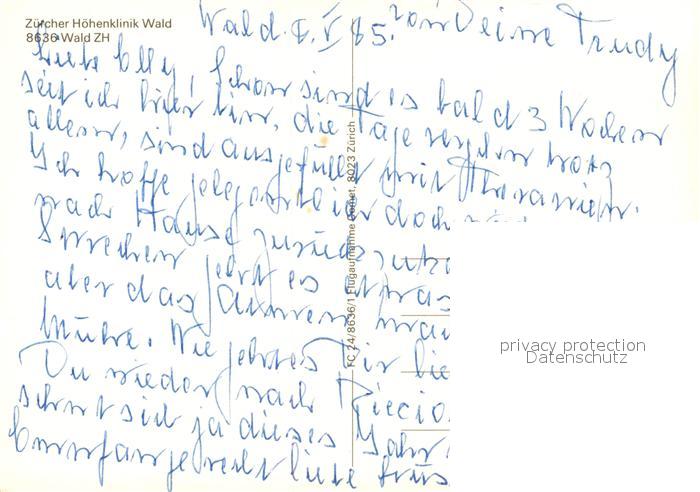 Zürcher Höhenklinik Wald
8636 Wald ZH
Wald 8. V 85. von Deine Trudy
Liebe Elly! Schon sind es bald 3 Wochen
seit ich hier bin, die Tage vergehen trotz
allem, sind ausgefüllt mit Therapien.
Ich hoffe gelegentlich doch
nach Hause zurück
Sprechen geht es etwas
aber das Atmen
Mühe. Wie geht es Dir
Du wieder nach
scheint sich ja dieses Jahr
Empfange recht liebe Grüs
FC 24/8636/1 Flugaufnahme Comet, 8023 Zürich
privacy protection
Datenschutz